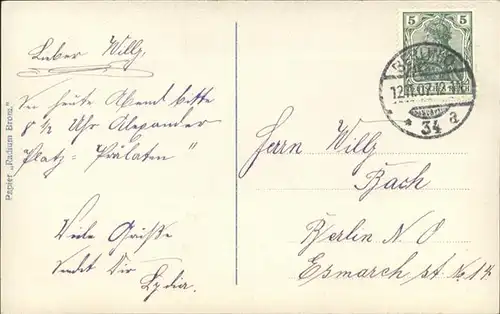 Lieber Willy,
Sei heute Abend bitte
8 1/2 Uhr Alexander
Platz = Prälaten"
Viele Grüße
sendet Dir
Lydia.
Papier „Radium Brom."
5 5
BERLIN N.O.
12.11.07.12-1N
* 34 a
Herrn Willy
Bach
Berlin N O
Esmarch st. No